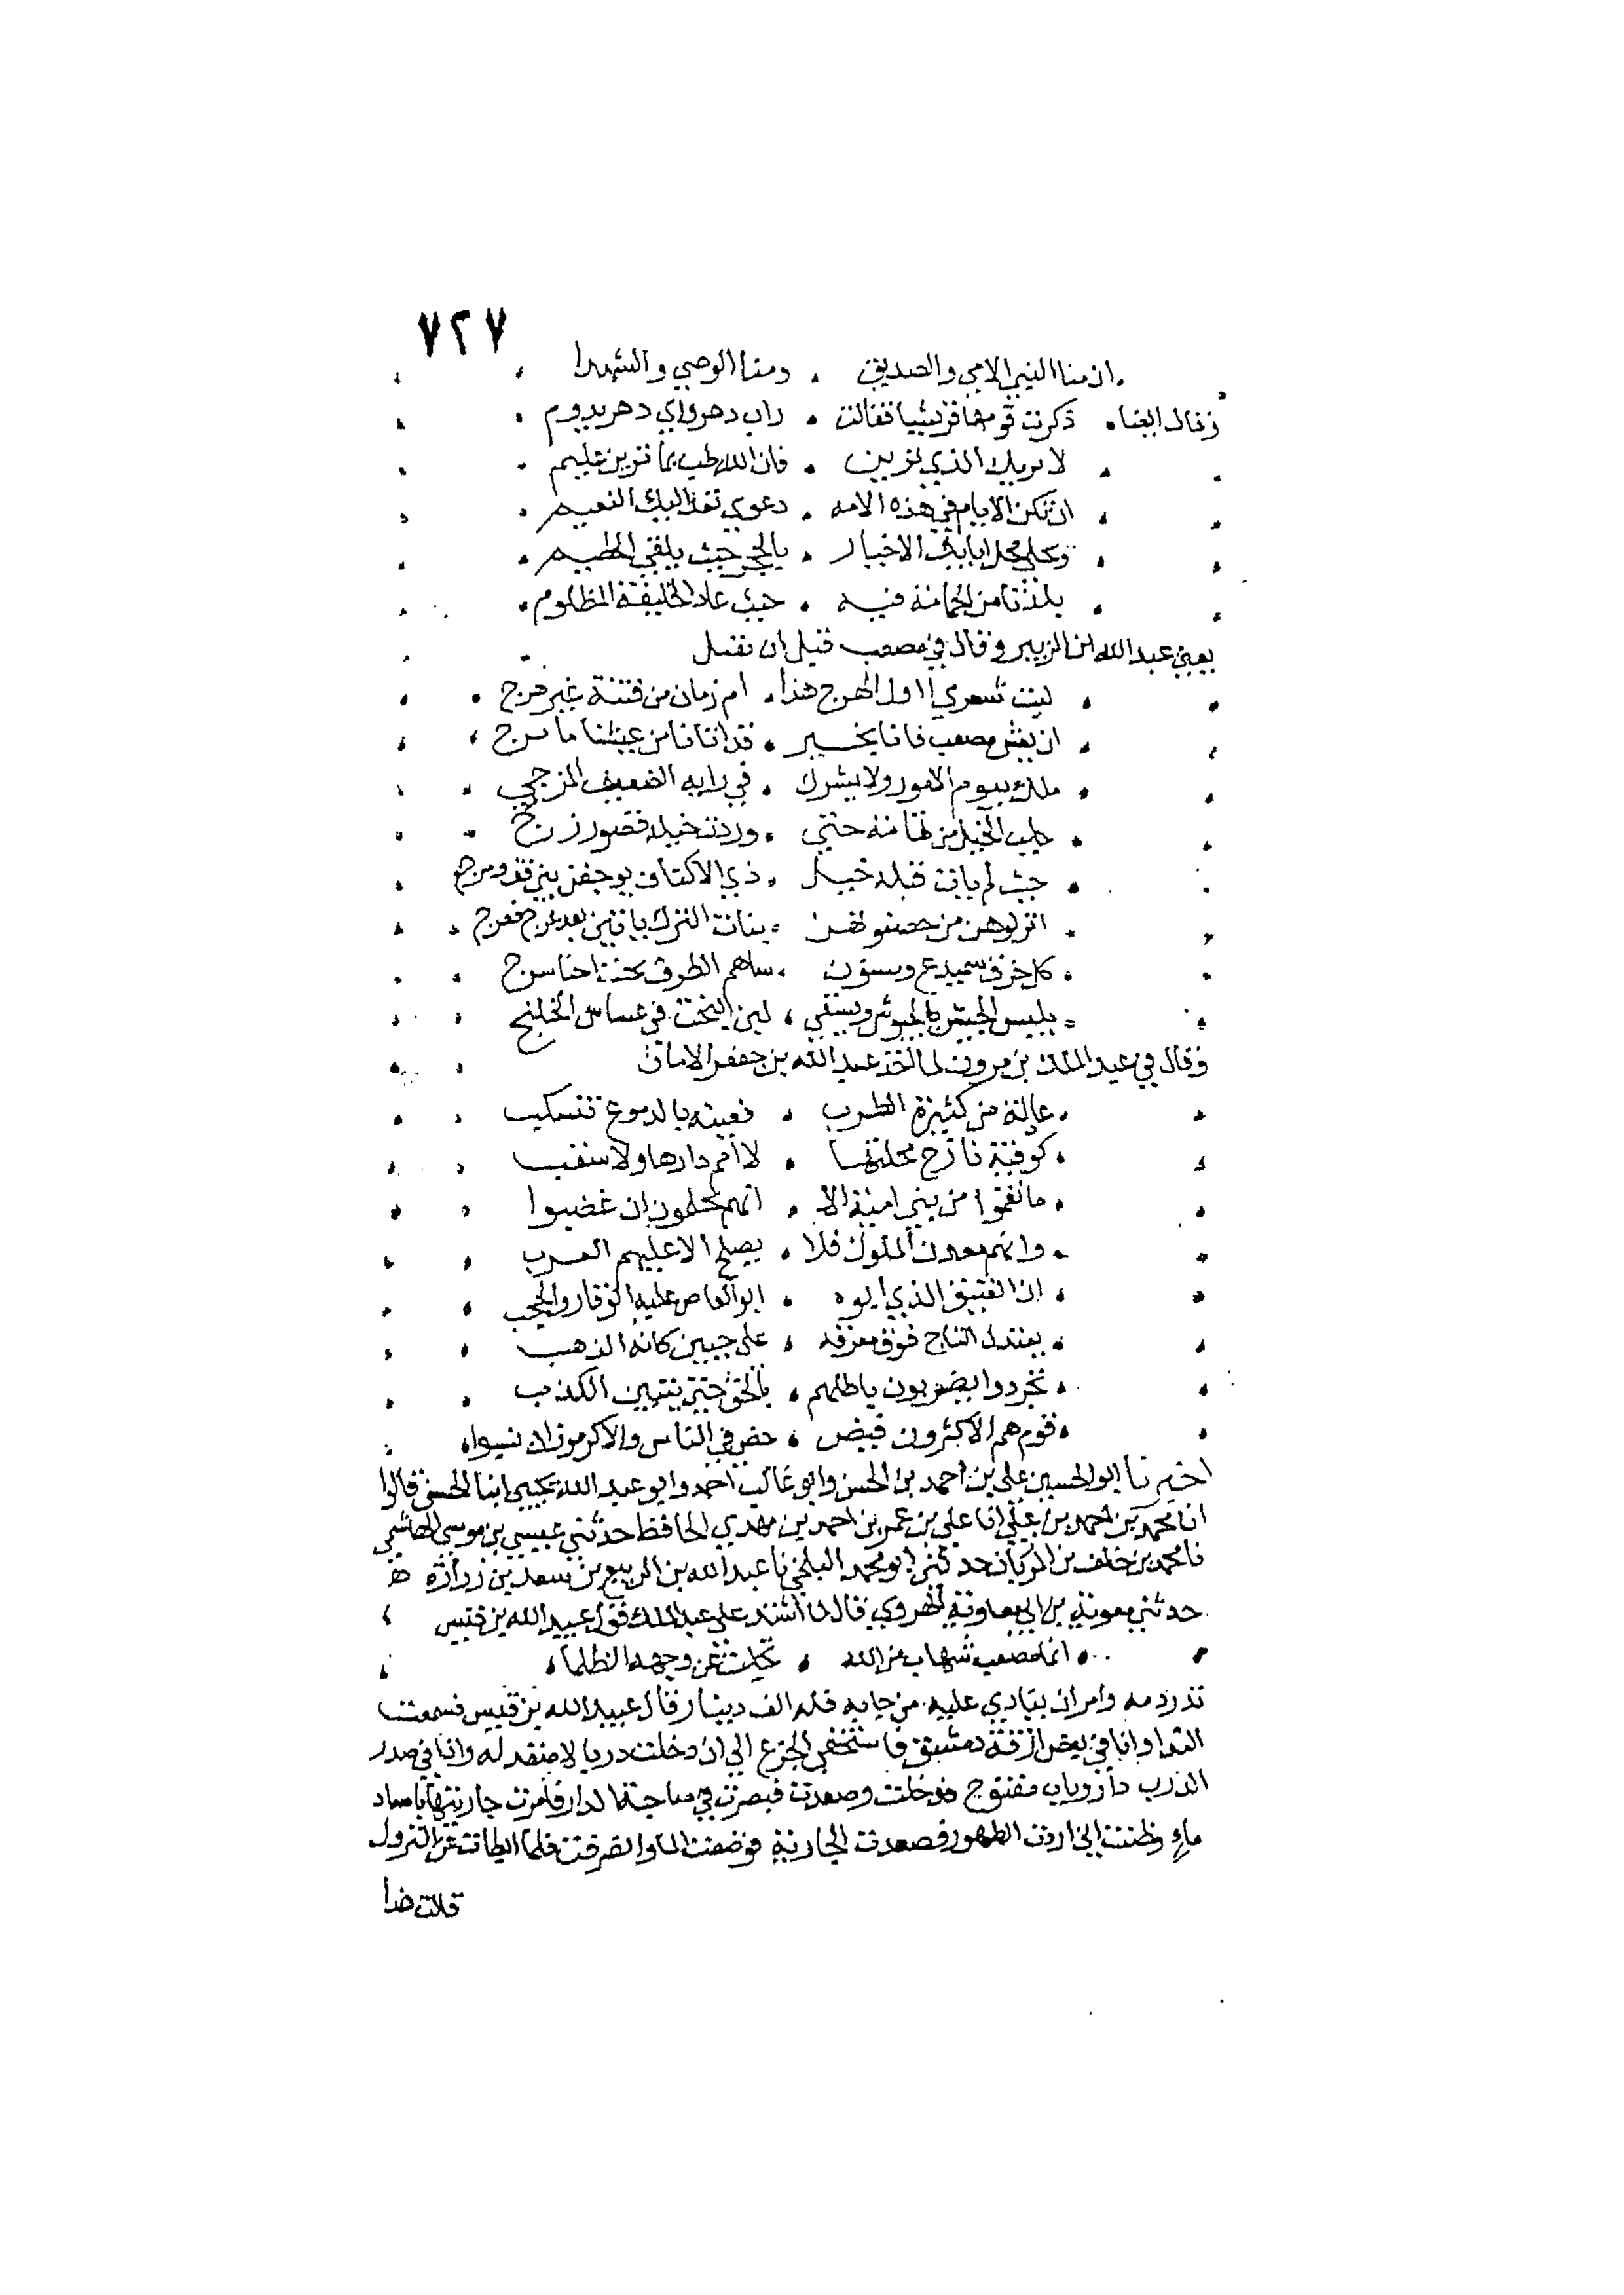 ٧٢٧
ان منا النبي الامي والصديق ومنا الوصي والشهدا
وقال ايضا ذكرت قومها قريشيا فقالت راب دهر واي دهر يدوم
لا يريبك الذي تريين فان الله طب بما ترين عليم
ان تكن الايام في هذه الامه دعوي تعد اليك النعيم
وتحلي محل ابايك الاخيار بالحجر حيث يلقي الحطيم
بلدة تامن الحمامة فيه حيث عاذ الخليفة المظلوم
يعني عبد الله ابن الزبير وقال في مصعب قبل ان يقتل
ليت شعري ااول الهرج هذا ام زمان من فتنة غير هرج
ان يعش مصعب فانا بخير قد اتانا من عيشنا ما نرجي
ملك يبرم الامور ولا يشرك في رايه الضعيف المزجي
جلب الخيل من تهامة حتي وردت خيله قصور زرنج
حيث لم يات قبله خيل ذي الاكتاف يوجفن بين قف ومرج
انزلوهن من حصونهن بنات الترك ياتين بعد عرج فعرج
كل خرق سميدع وسنون ساهم الطرف تحت احنا سرج
يلبس الجيش بالجيوش ويسقي لبن البخت في عساس الخلنج
وقال في عبد الملك بن مرون لما اخذ عبد الله بن جعفر الامان
عاد له من كثيرة الطرب فعينه بالدموع تنسكب
كوفية نازح محلتها لا امم دارها ولا سقب
ما نقموا من بني امية الا انهم يحلمون ان غضبوا
وانهم معدن الملوك فلا يصلح الا عليهم العرب
ان الفنيق الذي ابوه ابو العاص عليه الوقار والحجب
يعتدل التاج فوق مفرقه علي جبين كانه الذهب
تجردوا يضربون باطلهم بالحق حتي تبين الكذب
قوم هم الاكثرون قبض حصي في الناس والاكرمون ان نسبوا
اخبرنا ابو الحسين علي بن احمد بن الحسن وابو غالب احمد وابو عبد الله يحيي ابنا الحسن قالوا
انا محمد بن احمد بن علي انا علي بن عمر بن احمد بن مهدي الحافظ حدثني عيسي بن موسي الهاشمي
نا محمد بن خلف بن المرزبان حدثني ابو محمد البلخي نا عبد الله بن الربيع بن سعد بن زرارة
حدثني معوية بن ابي معاوية الهروي قال لما انشد علي عبد الملك قول عبيد الله بن قيس
انما مصعب شهاب من الله تجلت عن وجهه الظلما
نذر دمه وامر ان ينادي عليه من جا به فله الف دينار قال عبيد الله بن قيس فسمعت
الندا وانا في بعض ازقة دمشق فاستخفني الجزع الي ان دخلت دربا لا منفذ له واذا في صدر
الدرب دار وباب مفتوح فدخلت وصعدت فبصرت بي صاحبة الدار فامرت جاريتها باصعاد
ماء وظنت اني اردت الطهور فصعدت الجارية فوضعت الما وانصرفت فلما ابطات عن النزول
قالت هذا